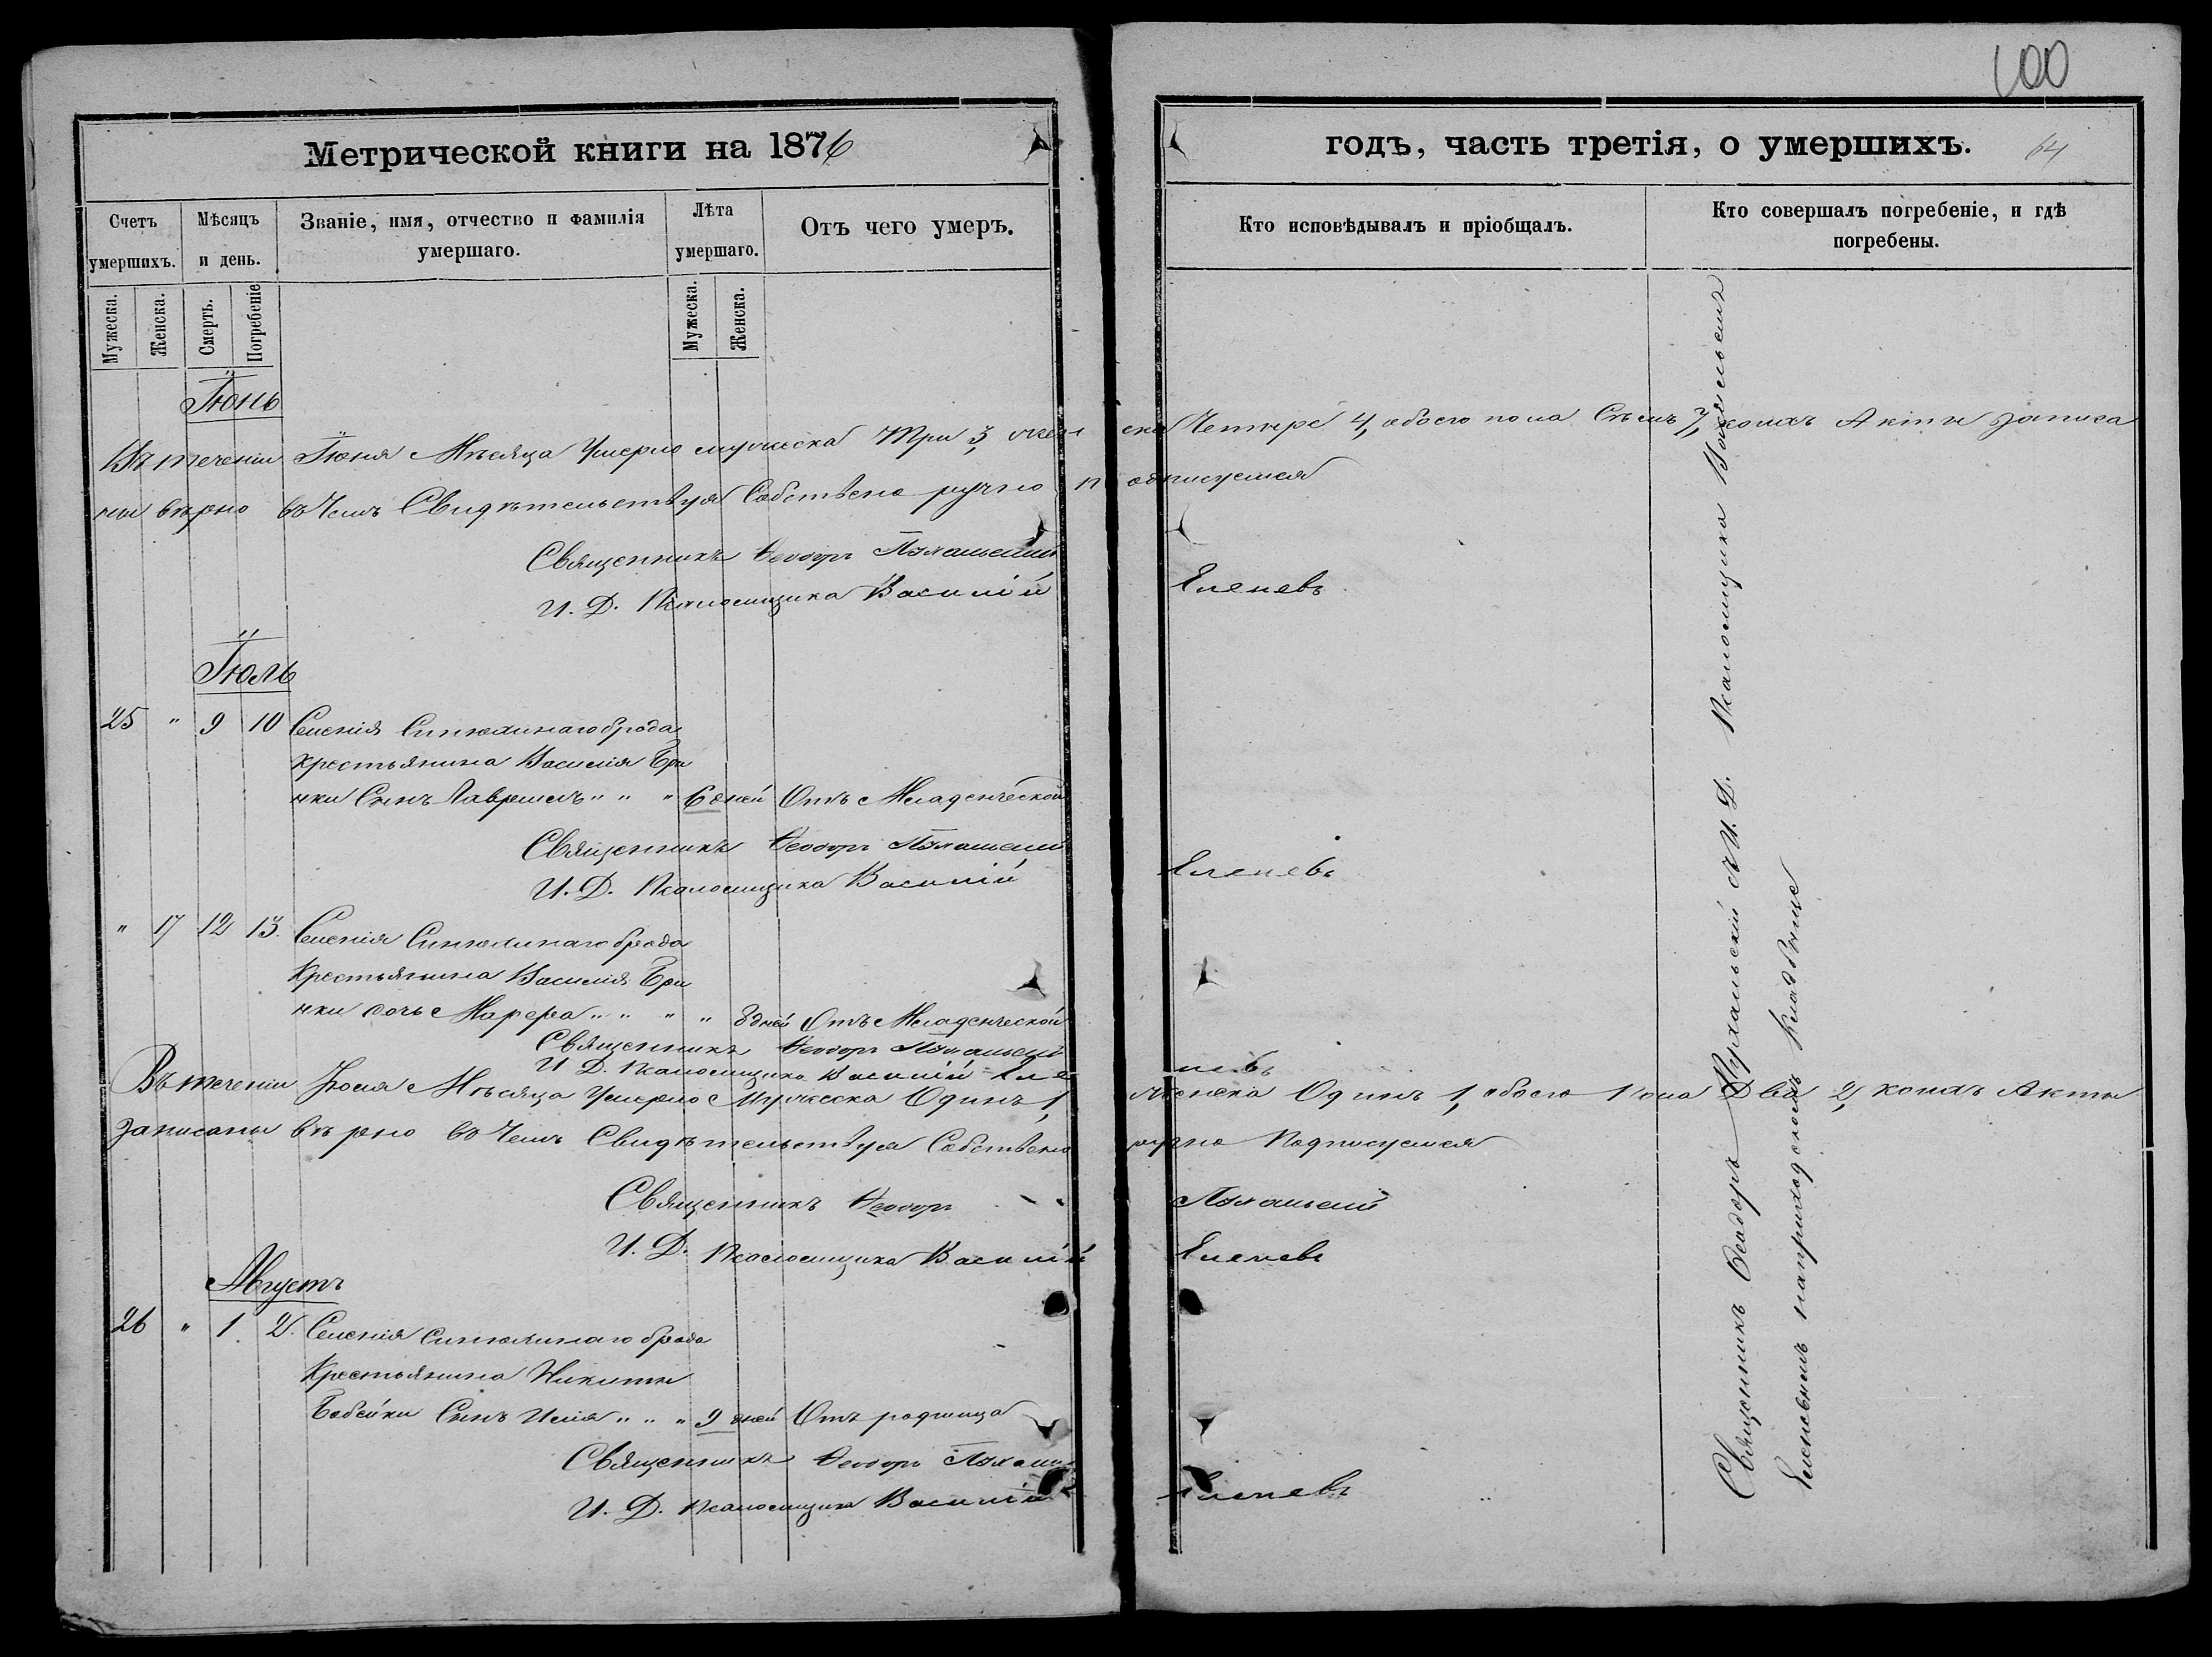 100
Метрической книги на 1876
годъ, часть третія, о умершихъ.
64
Счетъ умершихъ.
Мѣсяцъ и день.
Званіе, имя, отчество и фамилія умершаго.
Лѣта умершаго.
Отъ чего умеръ.
Кто исповѣдывалъ и пріобщалъ.
Кто совершалъ погребеніе, и гдѣ погребены.
Мужеска.
Женска.
Смерть.
Погребеніе
Мужеска.
Женска.
Іюнь
Въ теченіи Іюня Мѣсяца Умерло мужеска Три 3, женска Четыре 4, обоего пола Сѣмъ 7, коихъ Акты записа
ны вѣрно въ Чемъ Свидѣтельствуя Собствено ручно подписуемся
Священникъ Ѳеодоръ
И. Д. Псаломщика Василій Еленевъ
Іюль
25 " 9 10 Селенія Синюхинаго брода
крестьянина Василія Бри
нки Сынъ " " " 6 дней Отъ Младенческой
Священникъ Ѳеодоръ
И. Д. Псаломщика Василій Еленевъ
" 17 12 13. Селенія Синюхинаго брода
Крестьянина Василія Бри
нки дочь Марѳра " " " " 8 дней Отъ Младенческой
Священникъ Ѳеодоръ
И Д. Псаломщика Василій Еленевъ
Въ теченіи Іюля Мѣсяца Умерло Мужеска Одинъ 1, женска Одинъ 1, обоего пола Два 2, коихъ Акты
записаны вѣрно въ Чемъ Свидѣтельствуя Собствено ручно Подписуемся
Священникъ Ѳеодоръ
И. Д. Псаломщика Василій Еленевъ
Августъ
26 " 1. 2. Селенія Синюхинаго брода
Крестьянина Никиты
Бабейки Сынъ Илія " " " 9 дней Отъ родимца
Священникъ Ѳеодоръ
И. Д. Псаломщика Василій Еленевъ
Священникъ Ѳеодоръ И. Д. Псаломщика Василіемъ
Еленевымъ наприходскомъ Кладбище